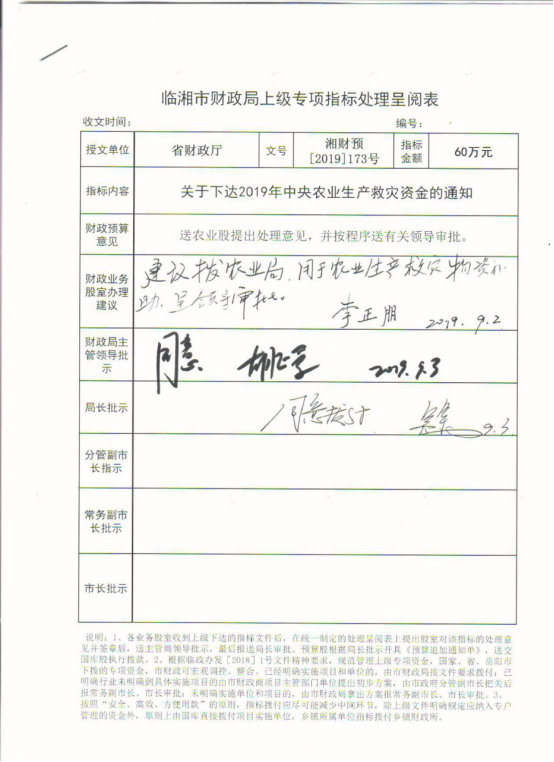 临湘市财政局上级专项指标处理呈阅表
收文时间： 编号：
授文单位 省财政厅 文号 湘财预[2019]173号 指标金额 60万元
指标内容 关于下达2019年中央农业生产救灾资金的通知
财政预算意见 送农业股提出处理意见，并按程序送有关领导审批。
财政业务股室办理建议 建议拨农业局，用于农业生产救灾物资补
助。呈领导审批。
李正朋 2019.9.2
财政局主管领导批示 同意 2019.9.3
局长批示 同意 9.3
分管副市长指示
常务副市长批示
市长批示
说明：1、各业务股室收到上级下达的指标文件后，在统一制定的处理呈阅表上提出股室对该指标的处理意
见并签章后，送主管局领导批示，最后报送局长审批。预算股根据局长批示开具《预算追加通知单》，送交
国库股执行拨款。2、根据临政办发[2018]1号文件精神要求，规范管理上级专项资金，国家、省、岳阳市
下拨的专项资金，市财政可宏观调控、整合，已经明确实施项目和单位的，由市财政局按文件要求拨付；已
明确行业未明确到具体实施项目的由市财政商项目主管部门单位提出初步方案，由市政府分管副市长把关后
报常务副市长、市长审批；未明确实施单位和项目的，由市财政局拿出方案报常务副市长、市长审批。3、
按照“安全、高效、方便用款”的原则，指标拨付应尽可能减少中间环节，除上级文件明确规定应纳入专户
管理的资金外，原则上由国库直接拨付项目实施单位，乡镇所属单位指标拨付乡镇财政所。